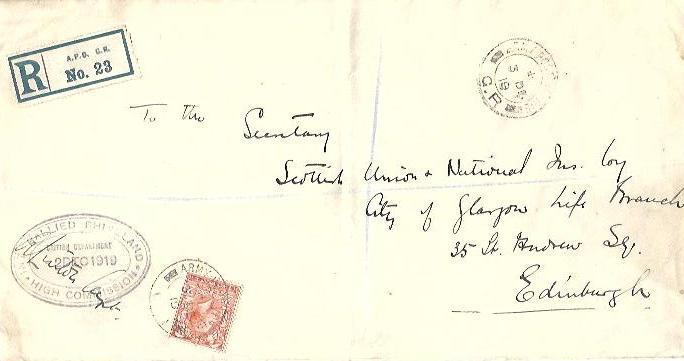 R
A.P.O. G.R.
No. 23
ARMY
5 DE
19
G.R.
To the Secretary
Scottish Union & National Ins. Coy
City of Glasgow Life Branch
35 St. Andrew Sq.
Edinburgh
INTER-ALLIED RHINELAND
BRITISH DEPARTMENT
2 DEC 1919
HIGH COMMISSION
ARMY